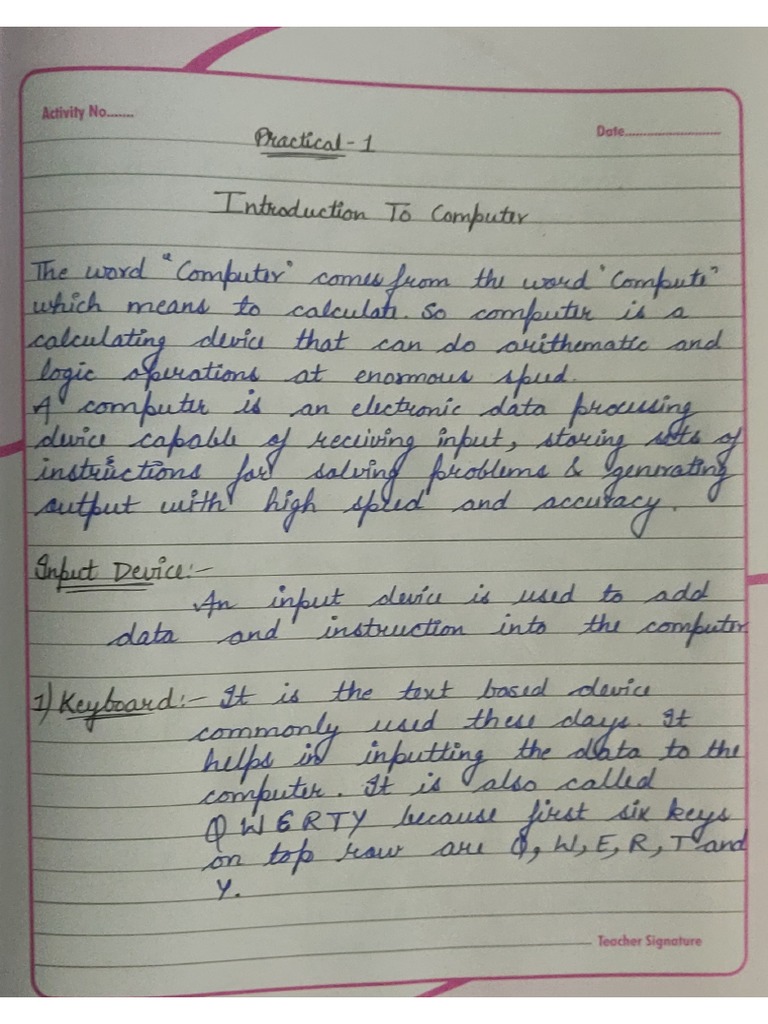 Activity No.......
Date............................
Practical - 1
Introduction To Computer
The word "Computer" comes from the word "Compute"
which means to calculate. So computer is a
calculating device that can do arithematic and
logic operations at enormous speed.
A computer is an electronic data processing
device capable of receiving input, storing sets of
instructions for solving problems & generating
output with high speed and accuracy.
Input Device:-
An input device is used to add
data and instruction into the computer
1) Keyboard:- It is the text based device
commonly used these days. It
helps in inputting the data to the
computer. It is also called
QWERTY because first six keys
on top row are Q, W, E, R, T and
Y.
Teacher Signature